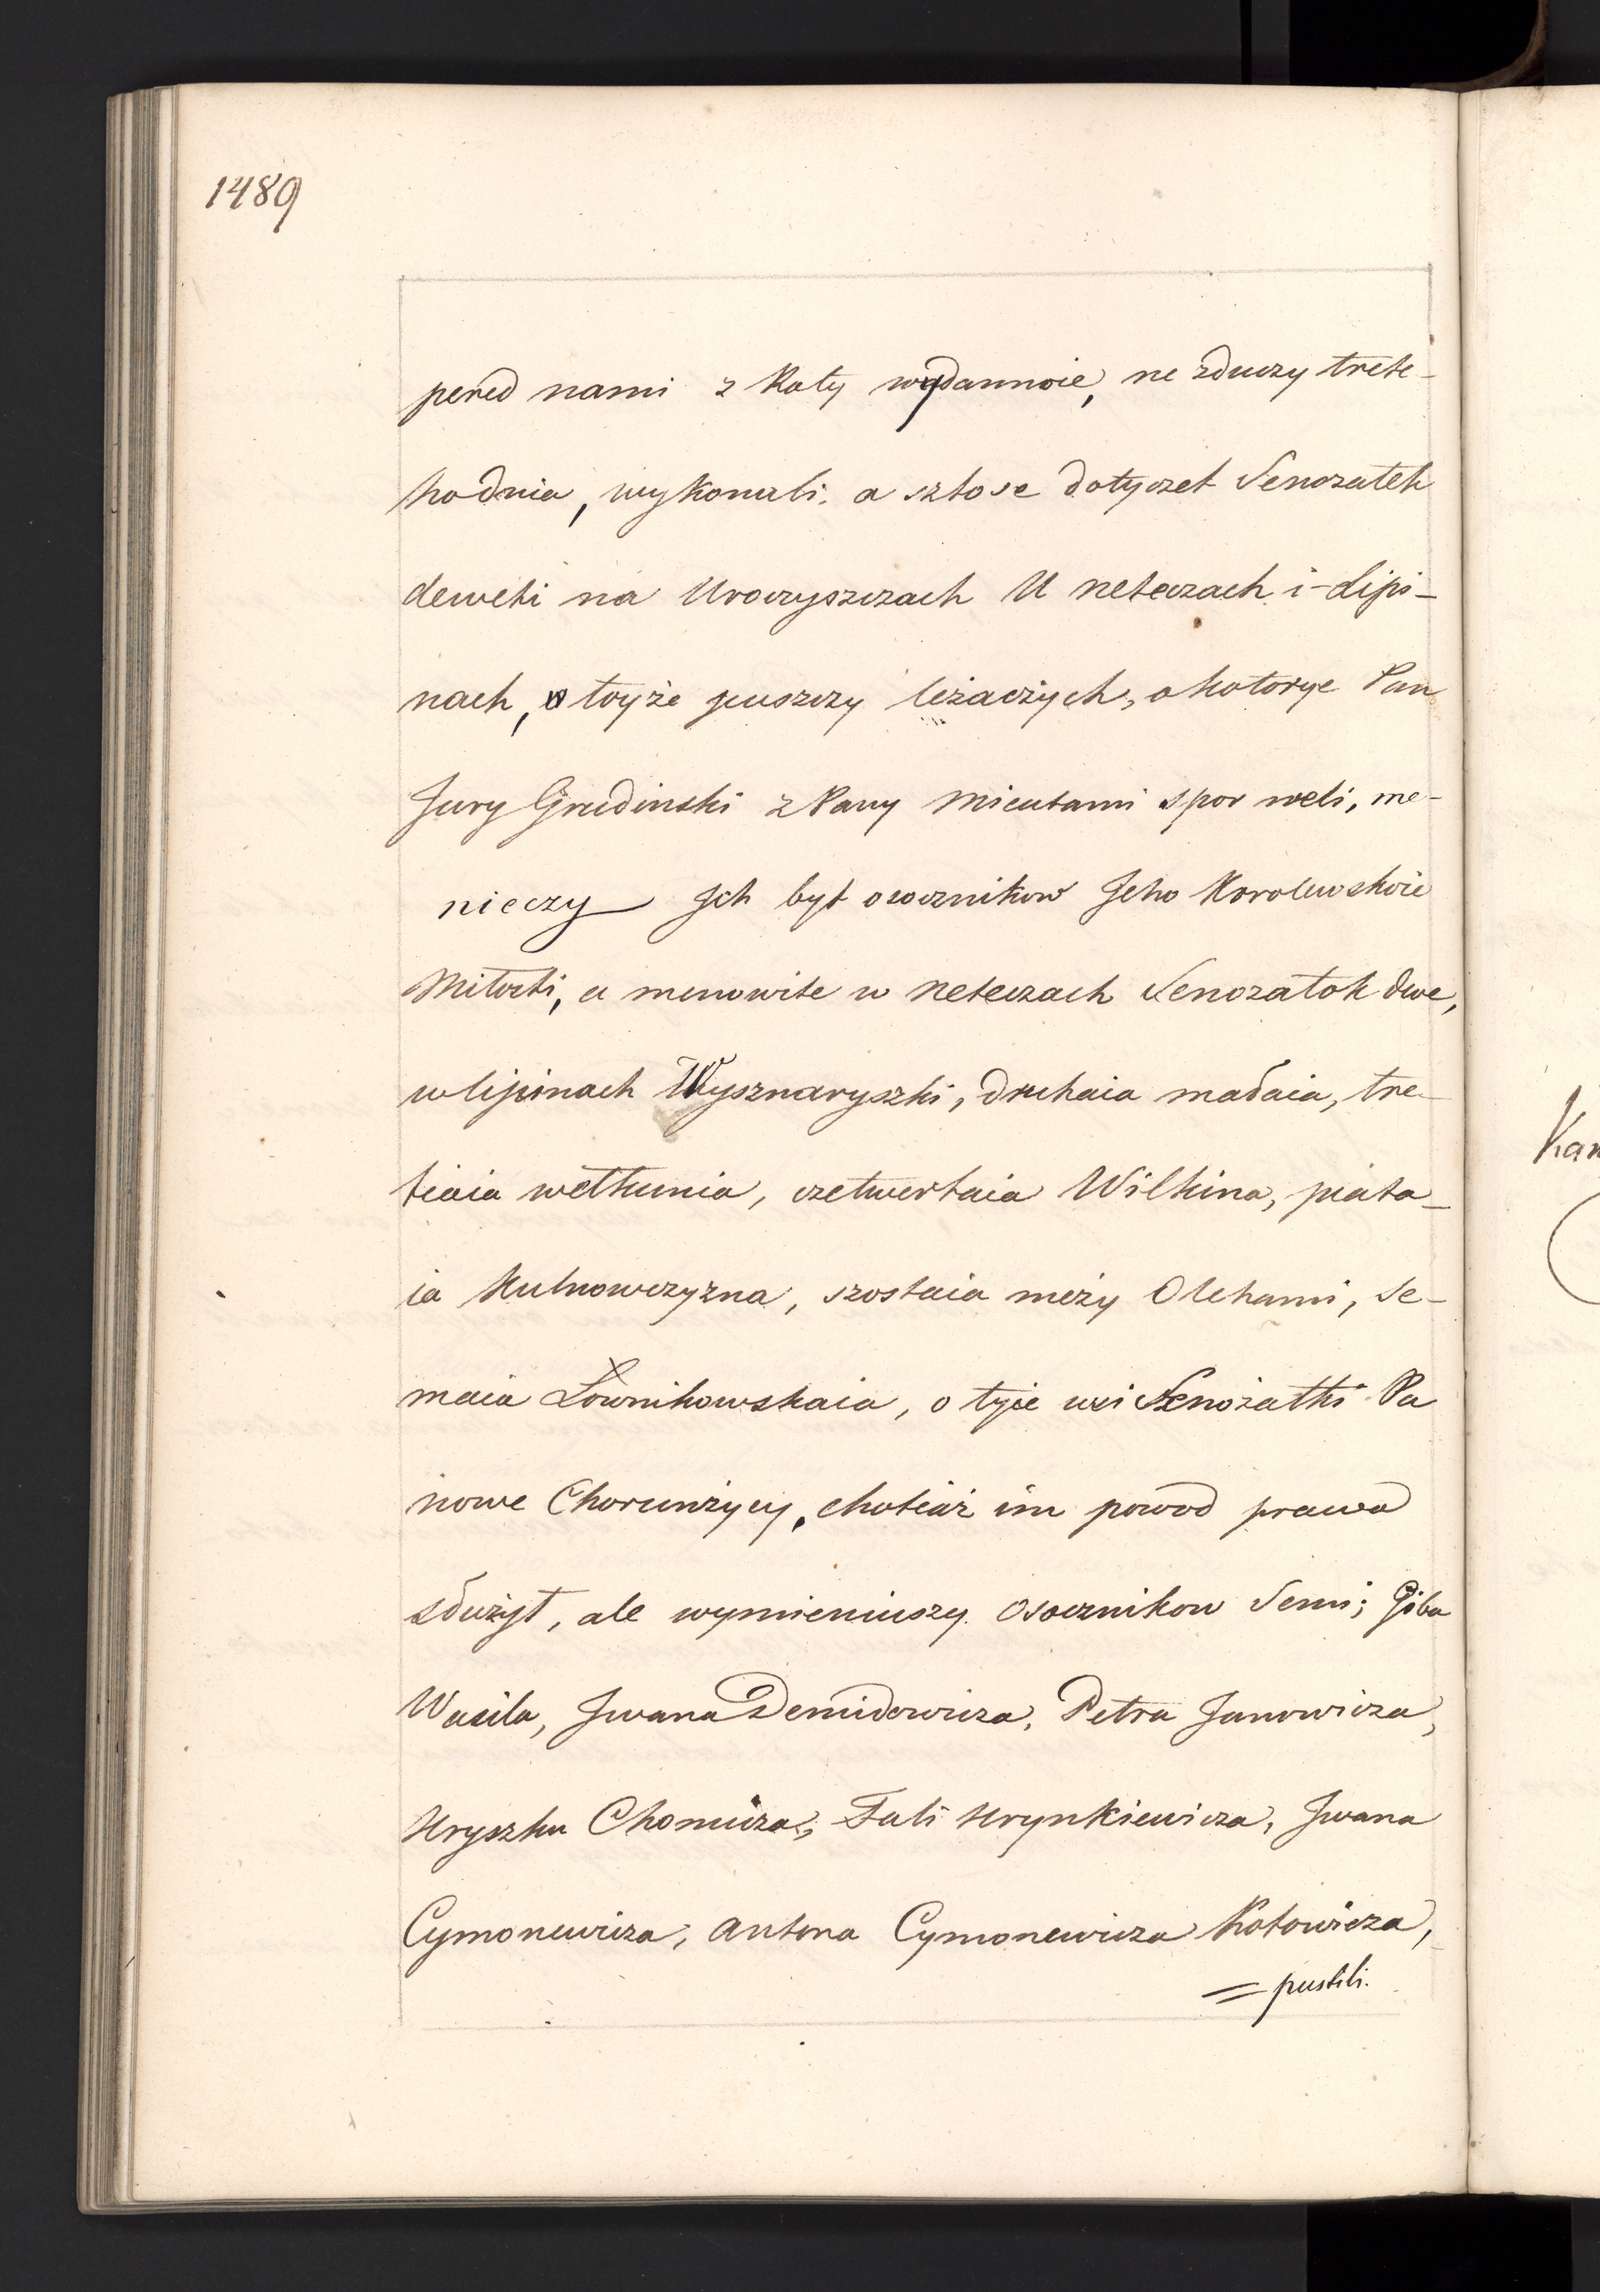 1489
pered nami z Roty wydannoie, ne zduczy trete-
ho dnia, wykonali. a sztose dotyczet Senozatek
deweti na Uroczyszczach U neteczach i-Lipi-
nach, w toyże puszczy leżaczych, o kotorye Pan
Jury Grudinski z Pany Mieutami spor weli, me-
nieczy Jch byt osocznikow Jeho Korolewskoie
Miłosti, a menowite w neteczach Senozatok dwe,
w lipinach Wysznaryszki, druhaia małaia, tre-
tiaia wetkunia, czetwertaia Wilkina, piata-
ia Kulnowczyzna, szostaia meży Olchami, Se-
maia Łownikowskaia, o tyie wsi Senożatki Pa
nowe Chorunżycy, chotiaż im powod prawa
służyt, ale wymieniuszy Osocznikow Semi; Giba
Wasila, Jwana Demidowicza, Petra Janowicza,
Hryszku Chomicza, Tali Hrynkiewicza, Jwana
Cymonewicza, Antona Cymonewicza Kotowicza,
= pustili.
Kan